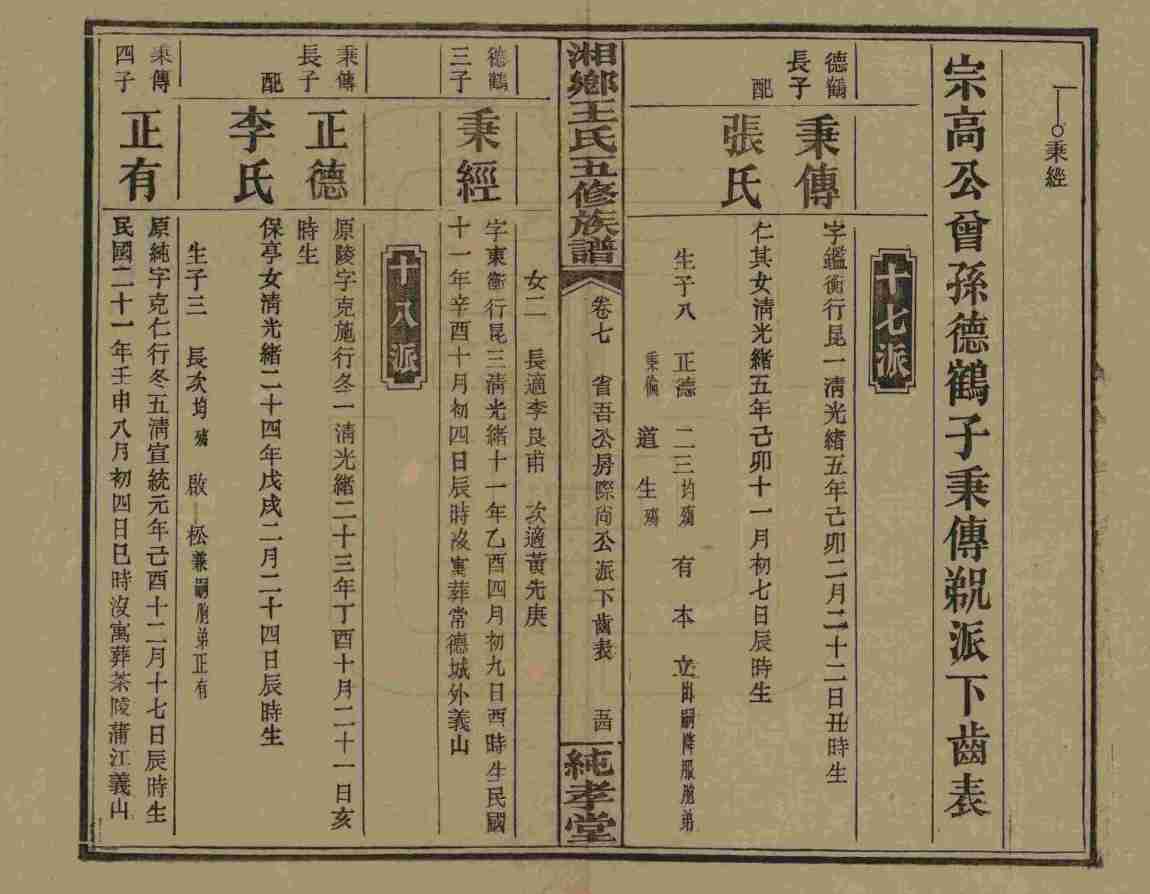 秉經
宗高公曾孫德鶴子秉傳派下齒表
十七派
德鶴長子
秉傳
字鑑衡行昆一清光緒五年己卯二月二十二日丑時生
配
張氏
仁其女清光緒五年己卯十一月初七日辰時生
生子八 正德 二三均殤 有 本 立出嗣降服胞弟
秉倫 道 生殤
湘鄉王氏五修族譜
卷七 省吾公房際尚公派下齒表
純孝堂
女二 長適李良甫 次適黃先庚
德鶴三子
秉經
字東衡行昆三清光緒十一年乙酉四月初九日酉時生民國
十一年辛酉十月初四日辰時沒寓葬常德城外義山
十八派
秉傳長子
正德
原陵字克施行冬一清光緒二十三年丁酉十月二十一日亥
時生
配
李氏
保亭女清光緒二十四年戊戌二月二十四日辰時生
生子三 長次均殤 啟松兼嗣胞弟正有
秉傳四子
正有
原純字克仁行冬五清宣統元年己酉十二月十七日辰時生
民國二十一年壬申八月初四日巳時沒寓葬茶陵蒲江義山